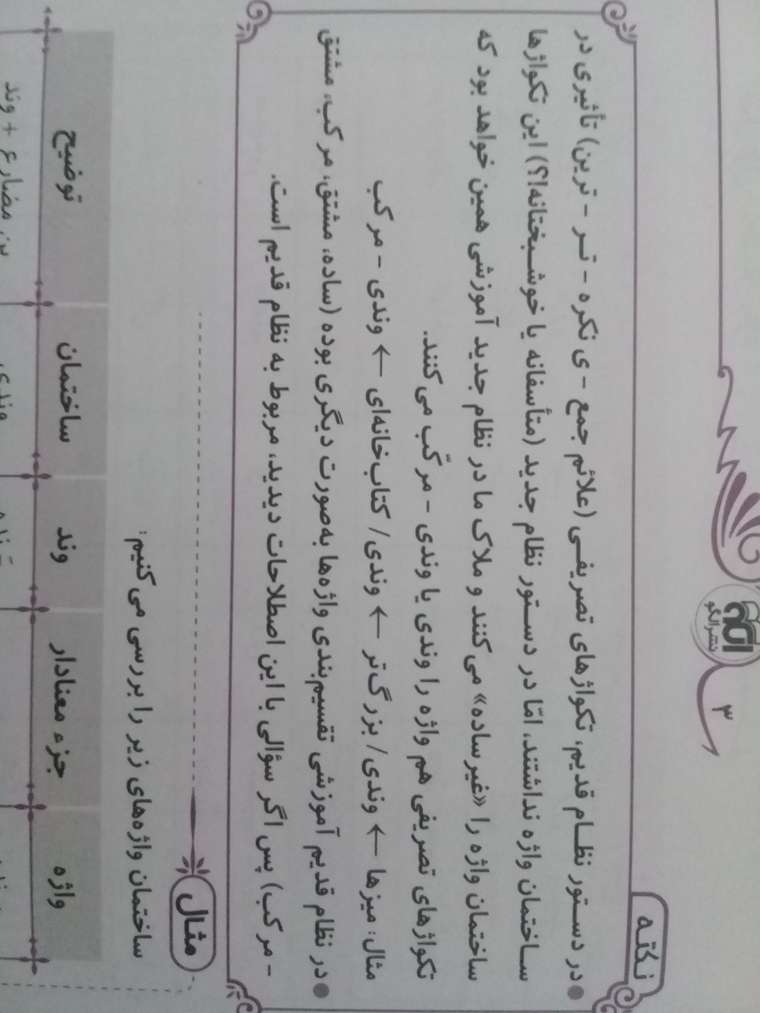 الگو
نشر الگو
۳
نکته
● در دستور نظام قدیم، تکواژهای تصریفی (علائم جمع - ی نکره - تر - ترین) تأثیری در
ساختمان واژه نداشتند، امّا در دستور نظام جدید (متأسفانه یا خوشبختانه!؟) این تکواژها
ساختمان واژه را «غیرساده» می‌کنند و ملاک ما در نظام جدید آموزشی همین خواهد بود که
تکواژهای تصریفی هم واژه را وندی یا وندی - مرکّب می‌کنند.
مثال: میزها ← وندی/ بزرگ‌تر ← وندی/ کتاب‌خانه‌ای ← وندی - مرکب
● در نظام قدیم آموزشی تقسیم‌بندی واژه‌ها به‌صورت دیگری بوده (ساده، مشتق، مرکب، مشتق
- مرکب) پس اگر سؤالی با این اصطلاحات دیدید، مربوط به نظام قدیم است.
مثال
ساختمان واژه‌های زیر را بررسی می‌کنیم:
واژه جزء معنادار وند ساختمان توضیح
وندی بن مضارع + وند